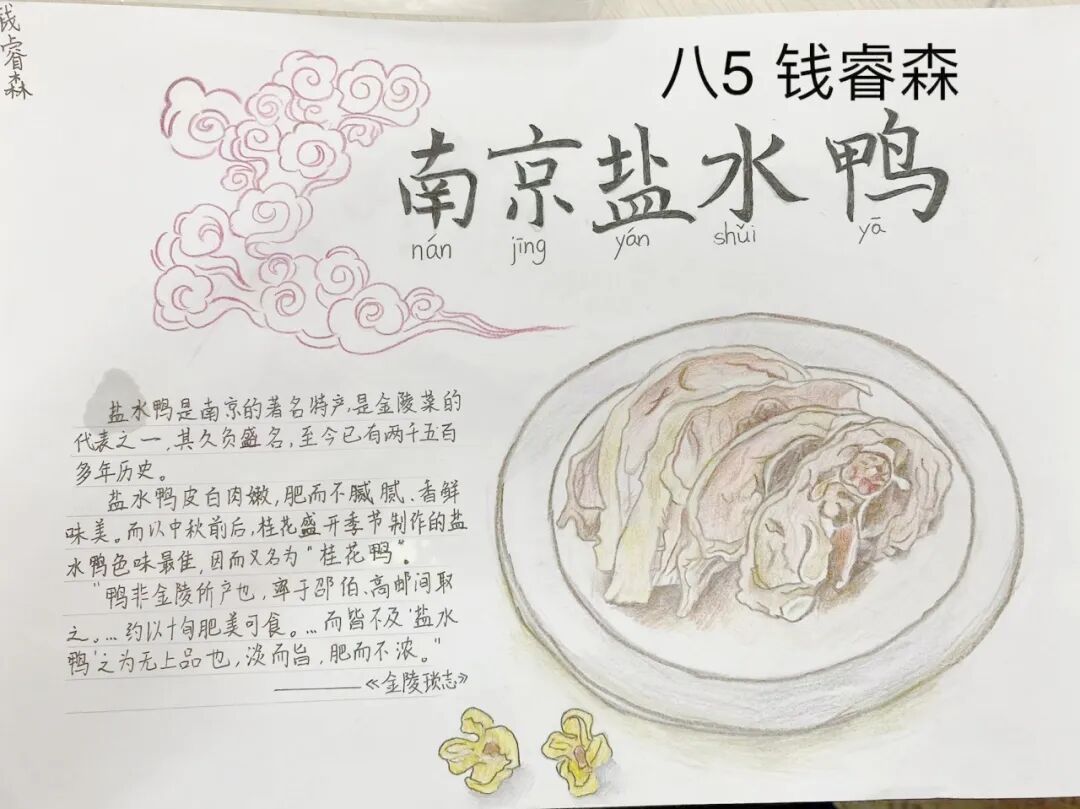 钱睿森
八5 钱睿森
南京盐水鸭
nán jīng yán shuǐ yā
盐水鸭是南京的著名特产,是金陵菜的
代表之一,其久负盛名,至今已有两千五百
多年历史。
盐水鸭皮白肉嫩,肥而不腻腻、香鲜
味美。而以中秋前后,桂花盛开季节制作的盐
水鸭色味最佳,因而又名为“桂花鸭”。
“鸭非金陵所产也,率于邵伯、高邮间取
之。…约以十旬肥美可食。…而皆不及‘盐水
鸭’之为无上品也,淡而旨,肥而不浓。”
——《金陵琐志》